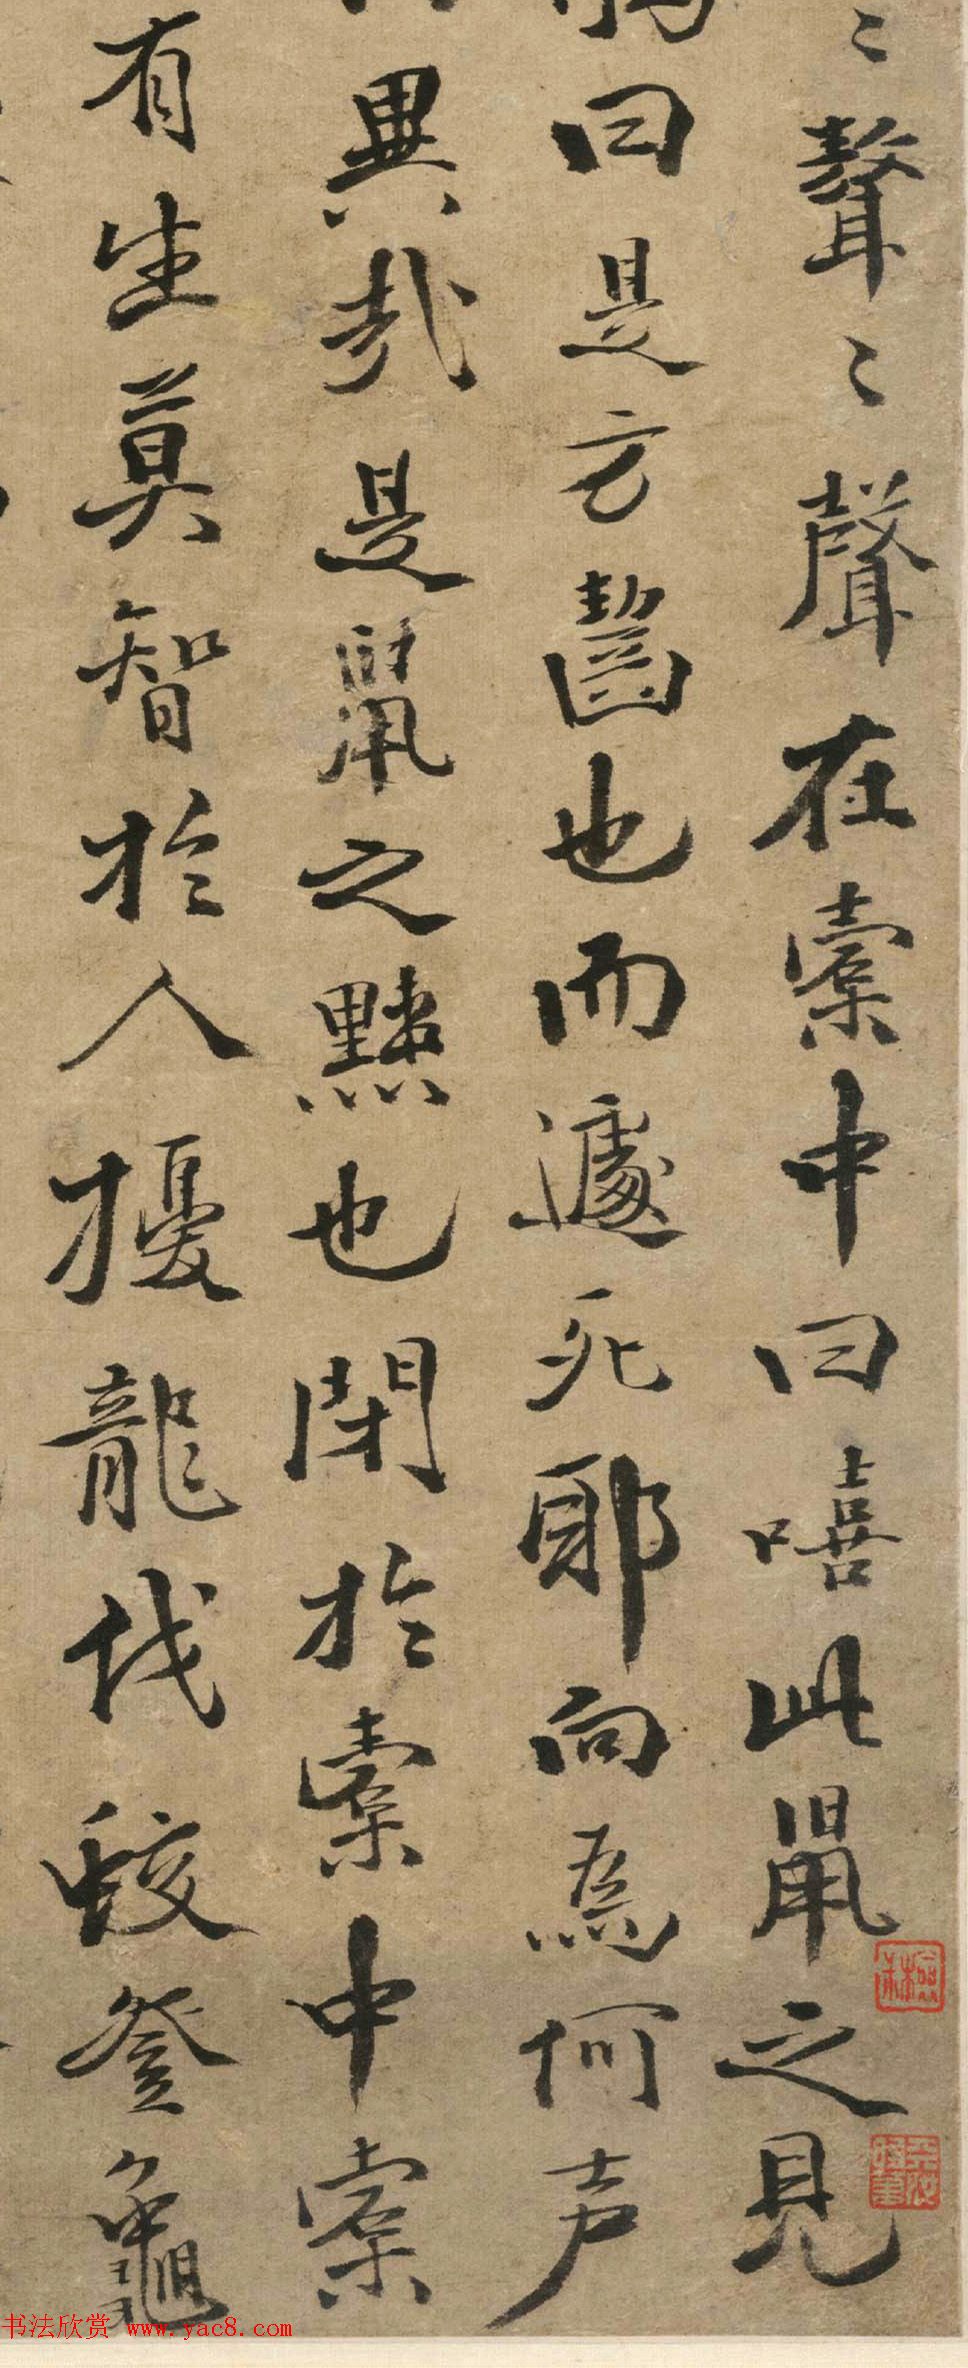 〻聱〻聲在橐中曰嘻此鼠之見
曰是方齧也而遽死耶向為何声
異哉是鼠之黠也閉於橐中橐
有生莫智於人擾龍伐蛟登龜
书法欣赏 www.yac8.com